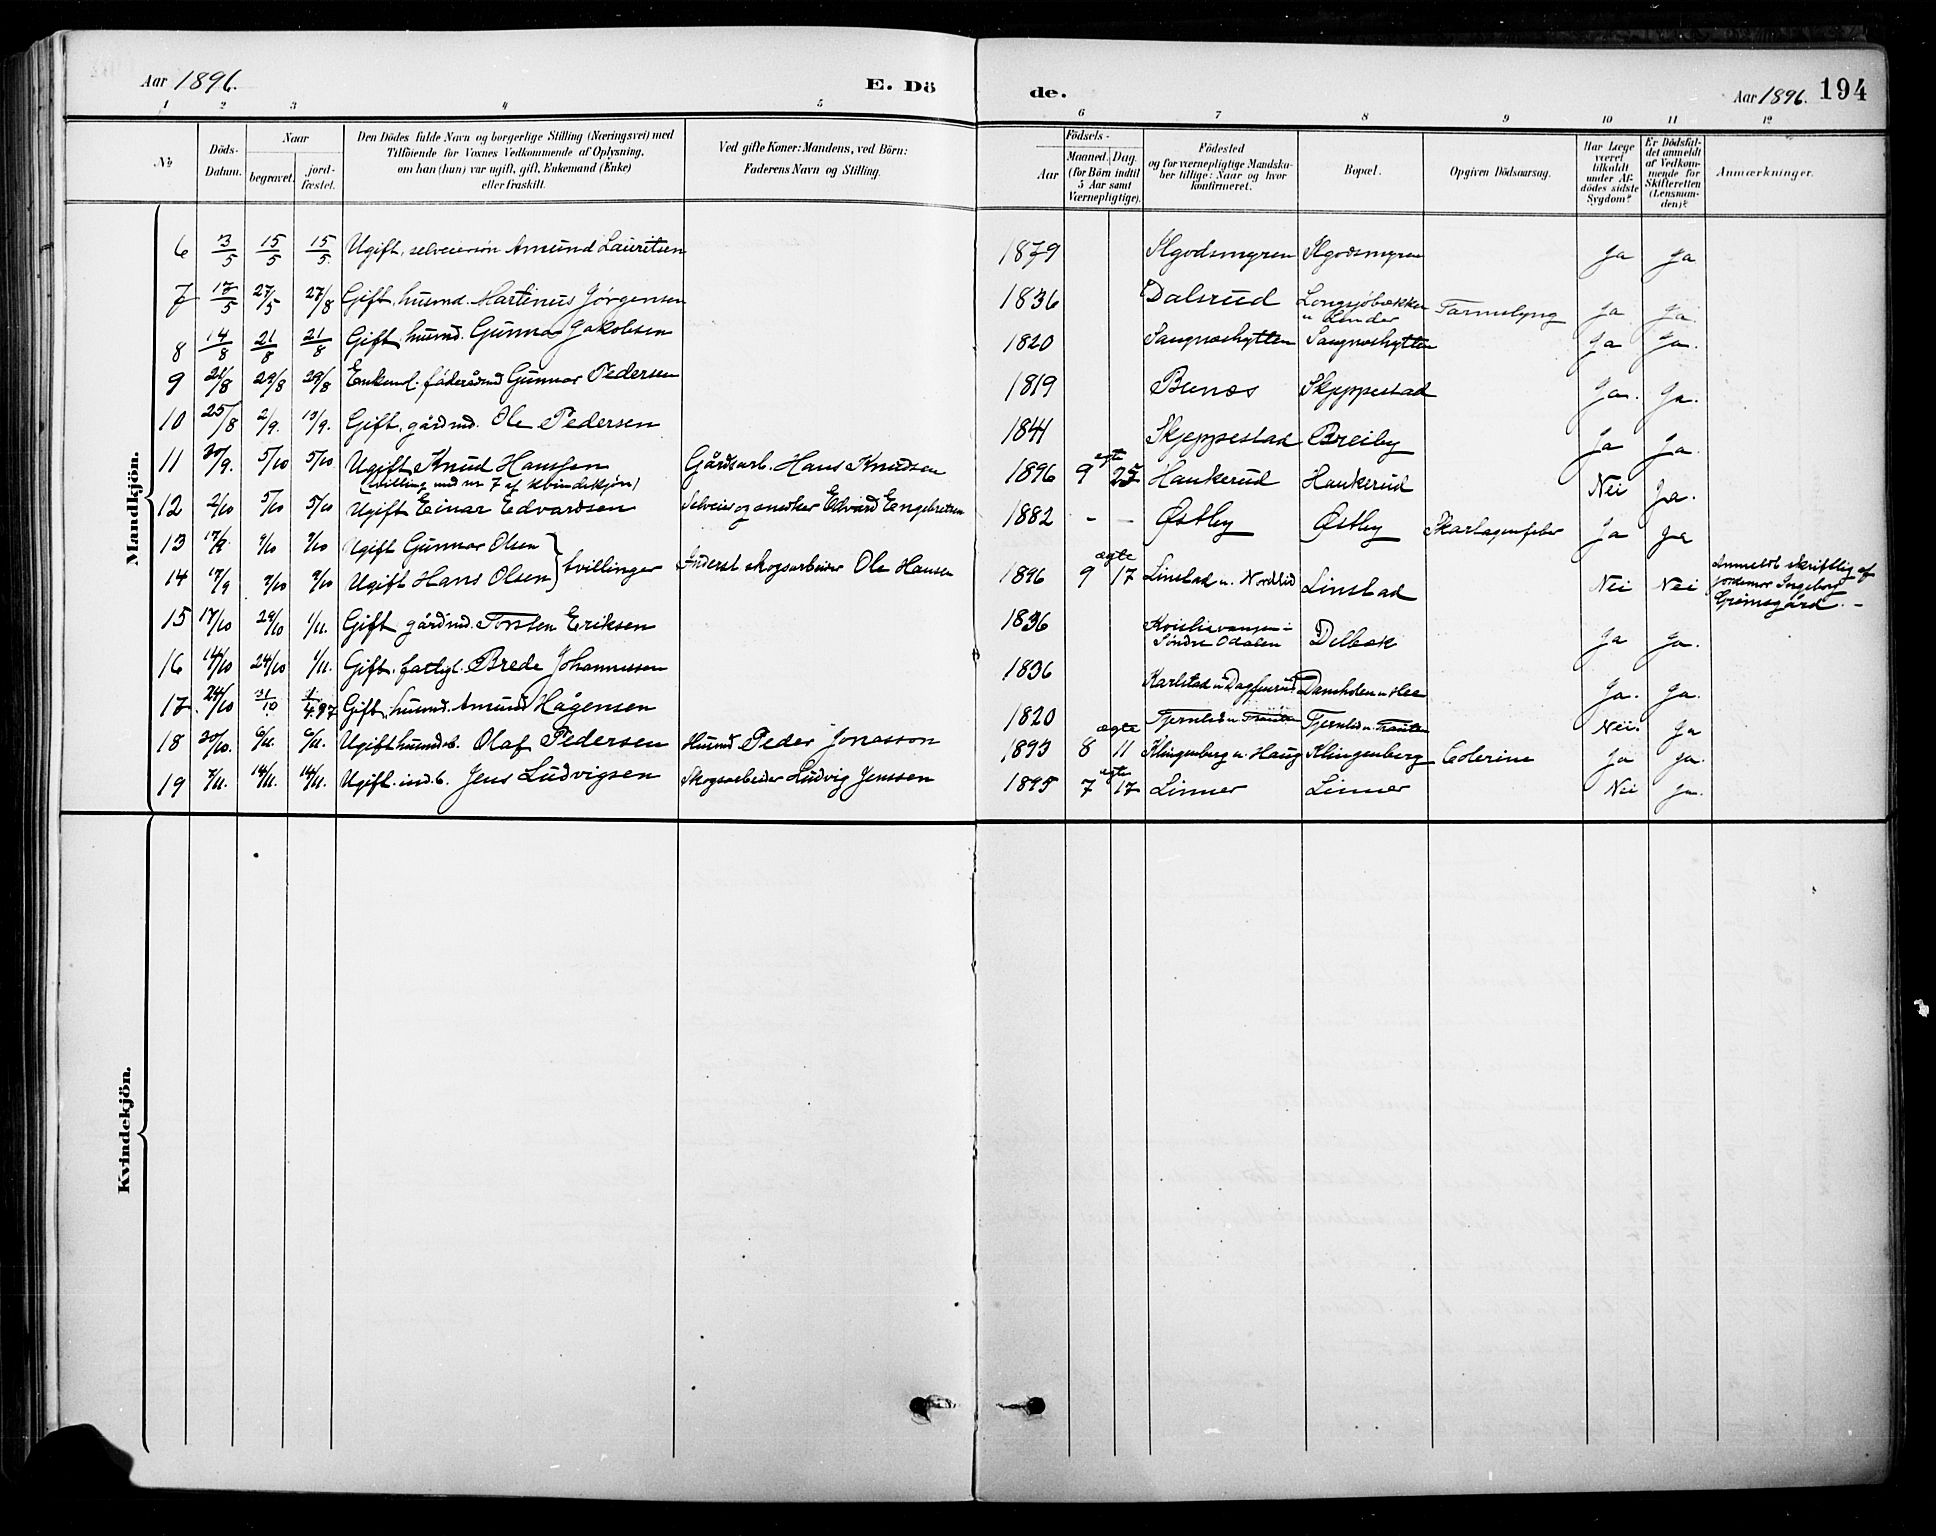 Aar 1896.
E. Dö
de.
Aar 1896.
194
1 2 3 4 5 6 7 8 9 10 11 12
№
Döds-
Datum.
Naar
begravet.
jord-
fæstet.
Den Dödes fulde Navn og borgerlige Stilling (Næringsvei) med
Tilföiende for Voxnes Vedkommende af Oplysning,
om han (hun) var ugift, gift, Enkemand (Enke)
eller fraskilt.
Ved gifte Koner: Mandens, ved Börn:
Faderens Navn og Stilling.
Födsels-
Aar
Maaned. Dag.
(for Börn indtil
5 Aar samt
Værnepligtige).
Födested
og for værnepligtige Mandska-
ber tillige: Naar og hvor
konfirmeret.
Bopæl.
Opgiven Dödsaarsag.
Har Læge
været
tilkaldt
under Af-
dödes sidste
Sygdom?
Er Dödsfal-
det anmeldt
af Vedkom-
mende for
Skifteretten
(Lensman-
den)?
Anmærkninger.
Mandkjön.
6 3/5 15/5 15/5 Ugift, selveiersön Amund Lauritsen 1879 Ja Ja
7 17/5 27/5 27/8 Gift, husmd. Martinus Jörgensen 1836 Dalsrud Ja Ja.
8 14/8 21/8 21/8 Gift, husmd. Gunnar Jakobsen 1820 Saugnæshytten Saugnæshytten Ja Ja.
9 21/8 29/8 29/8 Enkem. föderådmd Gunnar Pedersen 1819 Bunæs Skjeppestad Ja. Ja.
10 25/8 2/9. 13/9. Gift, gårdmd. Ole Pedersen 1844 Skjeppestad Breiby Ja Ja.
11 30/9. 5/10 5/10 Ugift Knud Hansen Gårdsarb. Hans Knudsen 1896 9 ægte 25 Haukerud Haukerud Nei Ja.
(tvilling med nr 7 af kvindekjön)
12 2/10 5/10 5/10 Ugift Einar Edvardsen Selveier og snedker Edvard Engebretsen 1882 - - Östby Östby Skarlagensfeber Ja Ja
13 17/9. 9/10 9/10 Ugift Gunnar Olsen
14 17/9 9/10 9/10 Ugift Hans Olsen } tvillinger Inderst skogsarbeider Ole Hansen 1896 9 ægte 17 Linstad u. Nordlid Linstad Nei Nei Anmeldt skriftlig af
jordemor Ingeborg
Grimsgård. -
15 17/10 29/10 1/11. Gift gårdmd. Torsten Eriksen 1836
Söndre Odalen Delbæk Ja Ja.
16 14/10 24/10 1/11. Gift, fattigl. Brede Johannessen 1836 Karlstad u. Ja. Ja.
17 24/10 31/10 1/4 97 Gift, husmd. Amund Hågensen 1820 Nei. Ja
18 30/10. 6/11. 6/11. Ugift husmdsb. Olaf Pedersen Husmd Peder Jonasson 1893 8 ægte 11 Klingenberg u. Haug Klingenberg Colerine Ja Ja.
19 7/11. 14/11. 14/11. Ugift ind.b. Jens Ludvigsen Skogsarbeider Ludvig Jenssen 1895 7 ægte 17 Linner Linner Nei Ja.
Kvindekjön.